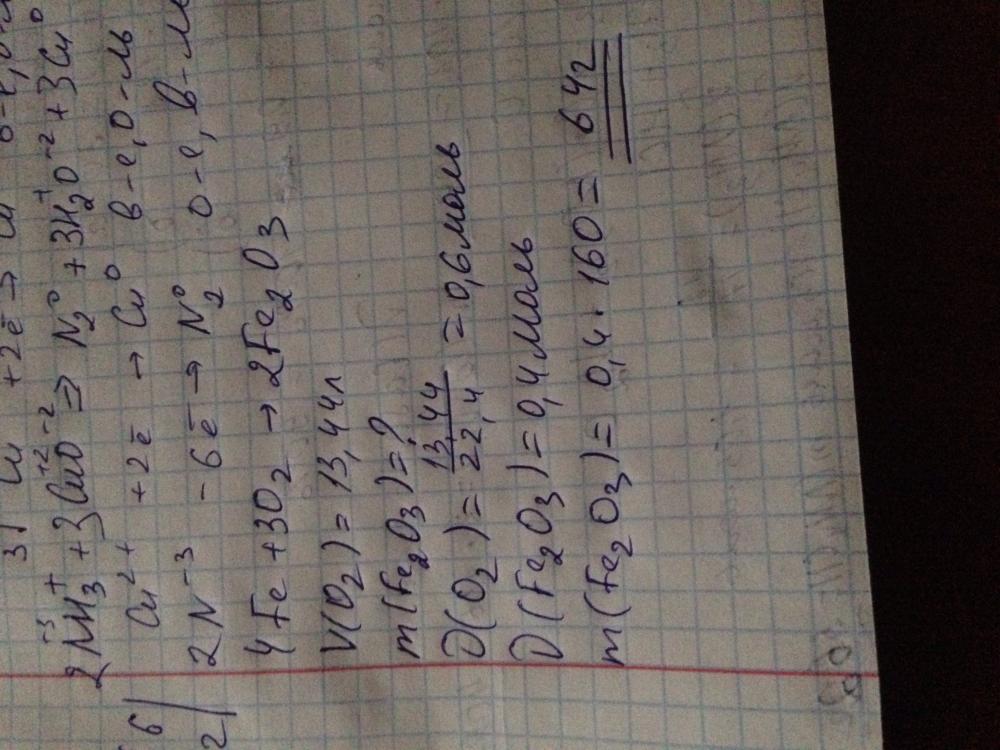 3| Cu +2ē →
2N⁻³H₃⁺ + 3Cu⁺²O⁻² ⇒ N₂⁰ + 3H₂⁺O⁻² + 3Cu⁰
6| Cu²⁺ +2ē → Cu⁰ в-е, о-ль
2| 2N⁻³ -6ē → N₂⁰ о-е, в-ль
4Fe + 3O₂ → 2Fe₂O₃
V(O₂) = 13,44л
m(Fe₂O₃) = ?
ν(O₂) = 13,44/22,4 = 0,6моль
ν(Fe₂O₃) = 0,4моль
m(Fe₂O₃) = 0,4 · 160 = 64г